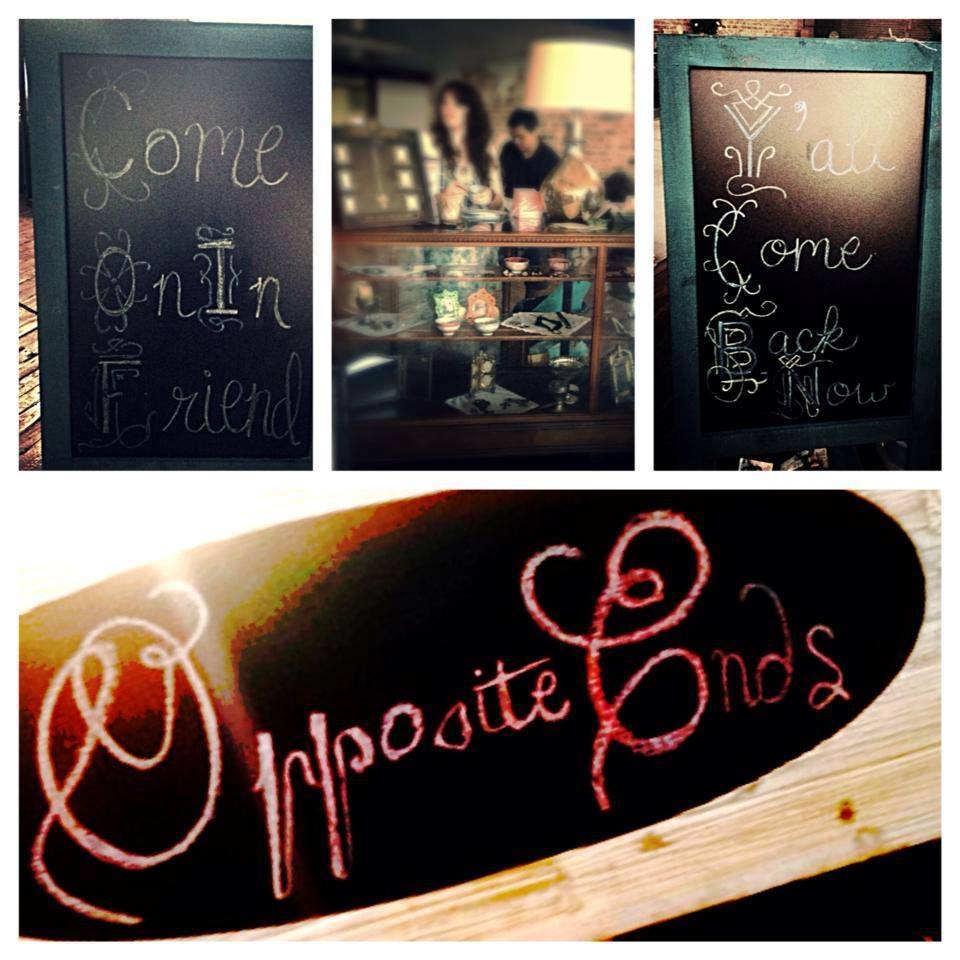 Come
On In
Friend
Y'all
Come
Back
Now
Opposite Ends